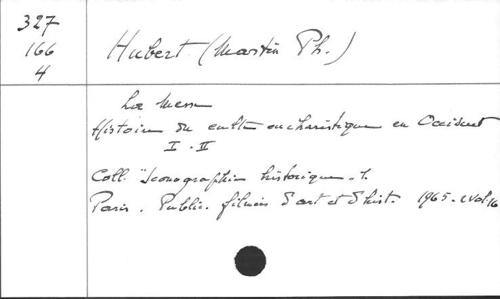 327
166
4
Hubert (Martin Ph.)
La Messe
Histoire du culte eucharistique en Occident
I - II
Coll. "Iconographie historique - 1.
Paris. Public. filmées d'art et d'hist. 1965. 2 vol. 16